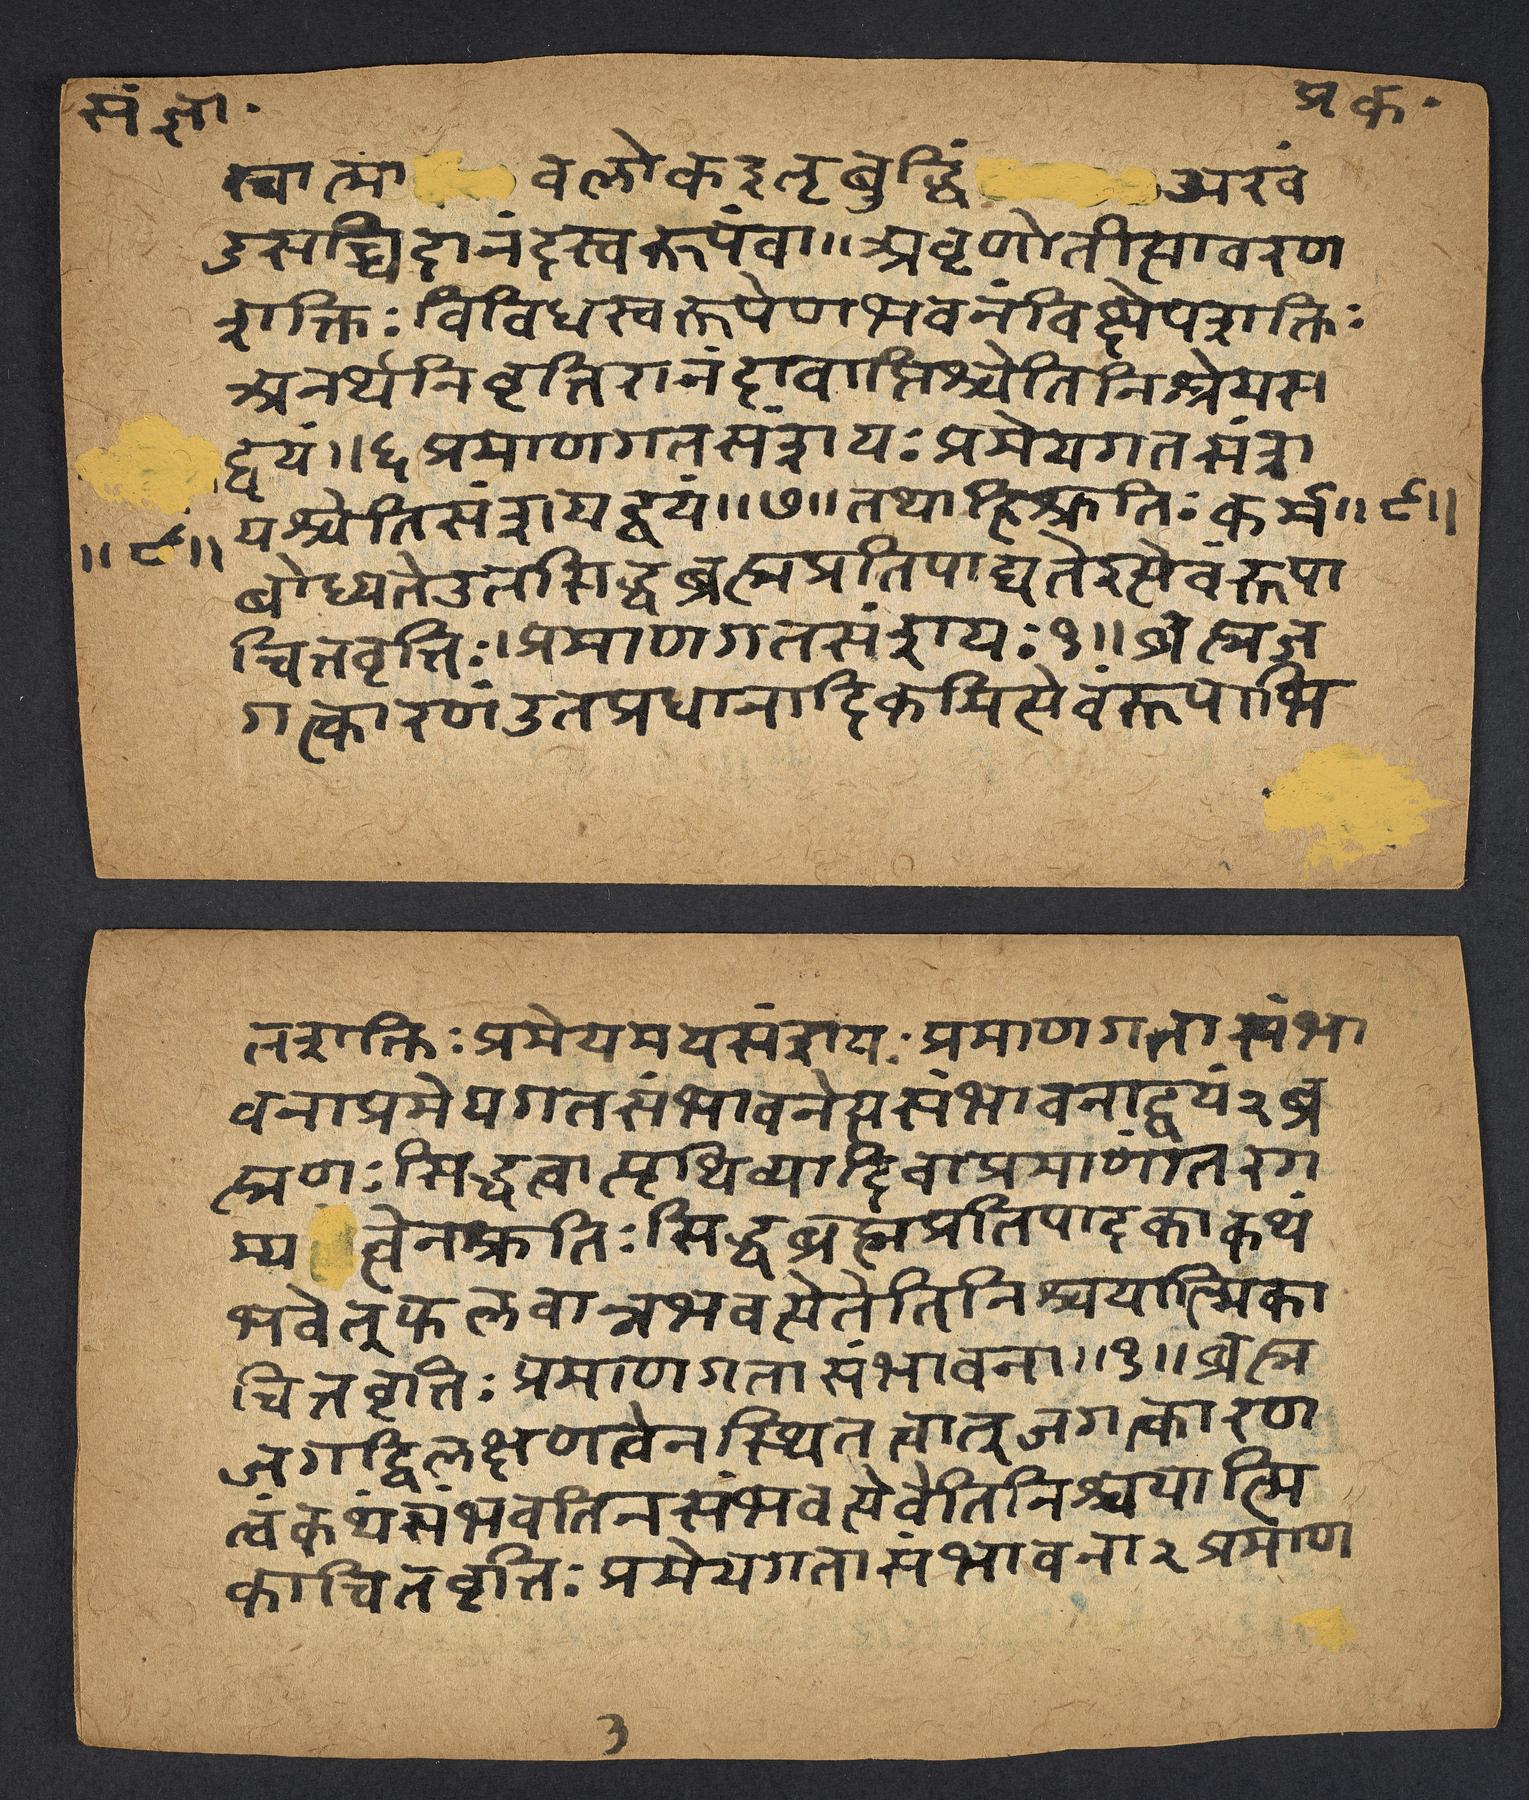 सं ज्ञा॰
प्र क॰
स्वात्मा वलोकइतृबुद्धिं अखं
डसच्चिदानंदस्वरूपंवा॥ अवृणोतीत्यावरण
शक्तिः विविधस्वरूपेणभवनंविक्षेपशक्तिः
अनर्थनिवृत्तिरानंदावाप्तिश्चेतिनिश्रेयस
द्वयं॥६ प्रमाणगतसंशयः प्रमेयगतसंश
यश्चेतिसंशयद्वयं॥७॥ तथाहिश्रुतिः कर्म
॥९॥
॥९॥
बोध्यतेउतसिद्धब्रह्मप्रतिपाद्यतेइत्येवंरूपा
चित्तवृत्तिः। प्रमाणगतसंशयः१॥ ब्रह्मज
गत्कारणंउतप्रधानादिकमित्येवंरूपाभि
तशक्तिः प्रमेयमयसंशयः प्रमाणगतासंभा
वनाप्रमेयगतसंभावनेत्यसंभावनाद्वयं२ब्र
ह्मणः सिद्धत्वात्पृथिव्यादिवाप्रमाणांतरग
म्य त्वेनश्रुतिः सिद्धब्रह्मप्रतिपादकाकथं
भवेत्फलवान्नभवत्येतेतिनिश्चयात्मिका
चित्तवृत्तिः प्रमाणगतासंभावना॥१॥ ब्रह्म
जगद्विलक्षणत्वेनस्थितत्वात्जगत्कारण
त्वंकथंसंभवतिनसंभवत्येवेतिनिश्चयात्मि
काचित्तवृत्तिः प्रमेयगतासंभावना२ प्रमाण
3